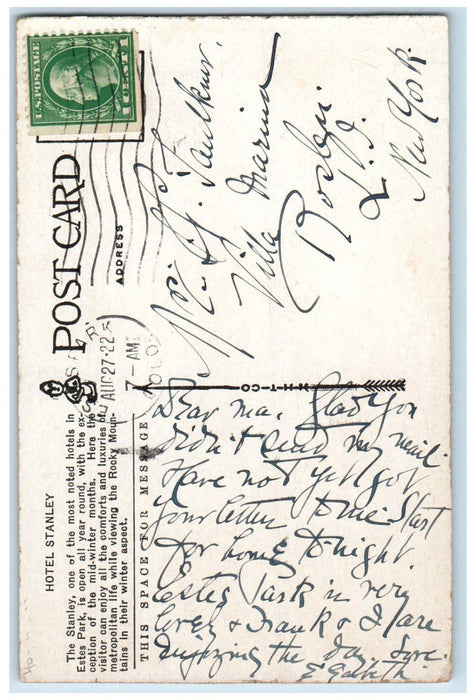 HOTEL STANLEY
The Stanley, one of the most noted hotels in
Estes Park, is open all year round, with the ex-
ception of the mid-winter months. Here the
visitor can enjoy all the comforts and luxuries of
metropolitan life while viewing the Rocky Moun-
tains in their winter aspect.
THIS SPACE FOR MESSAGE
POST CARD
ADDRESS
U.S. POSTAGE
1 CENT 1
AUG 27-22
7-AM
COLO
H-H-T-CO
Faulkner.
Villa Marina
Roslyn
L.I.
New York
Dear Ma. Glad you
didn't send my mail.
Have not yet got
your letter to me. Start
for home to-night.
Estes Park is very
lovely & Frank & I are
enjoying the day. Love.
Elizabeth